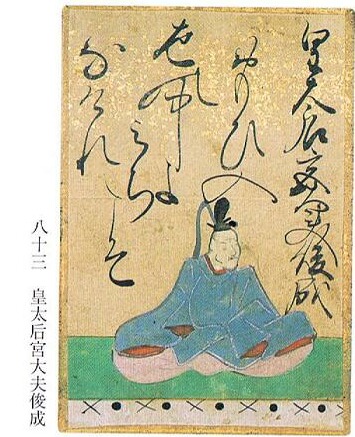 皇太后宮大夫俊成
世の中よ
みちこそ
なけれ
おもひ入
八十三　皇太后宮大夫俊成